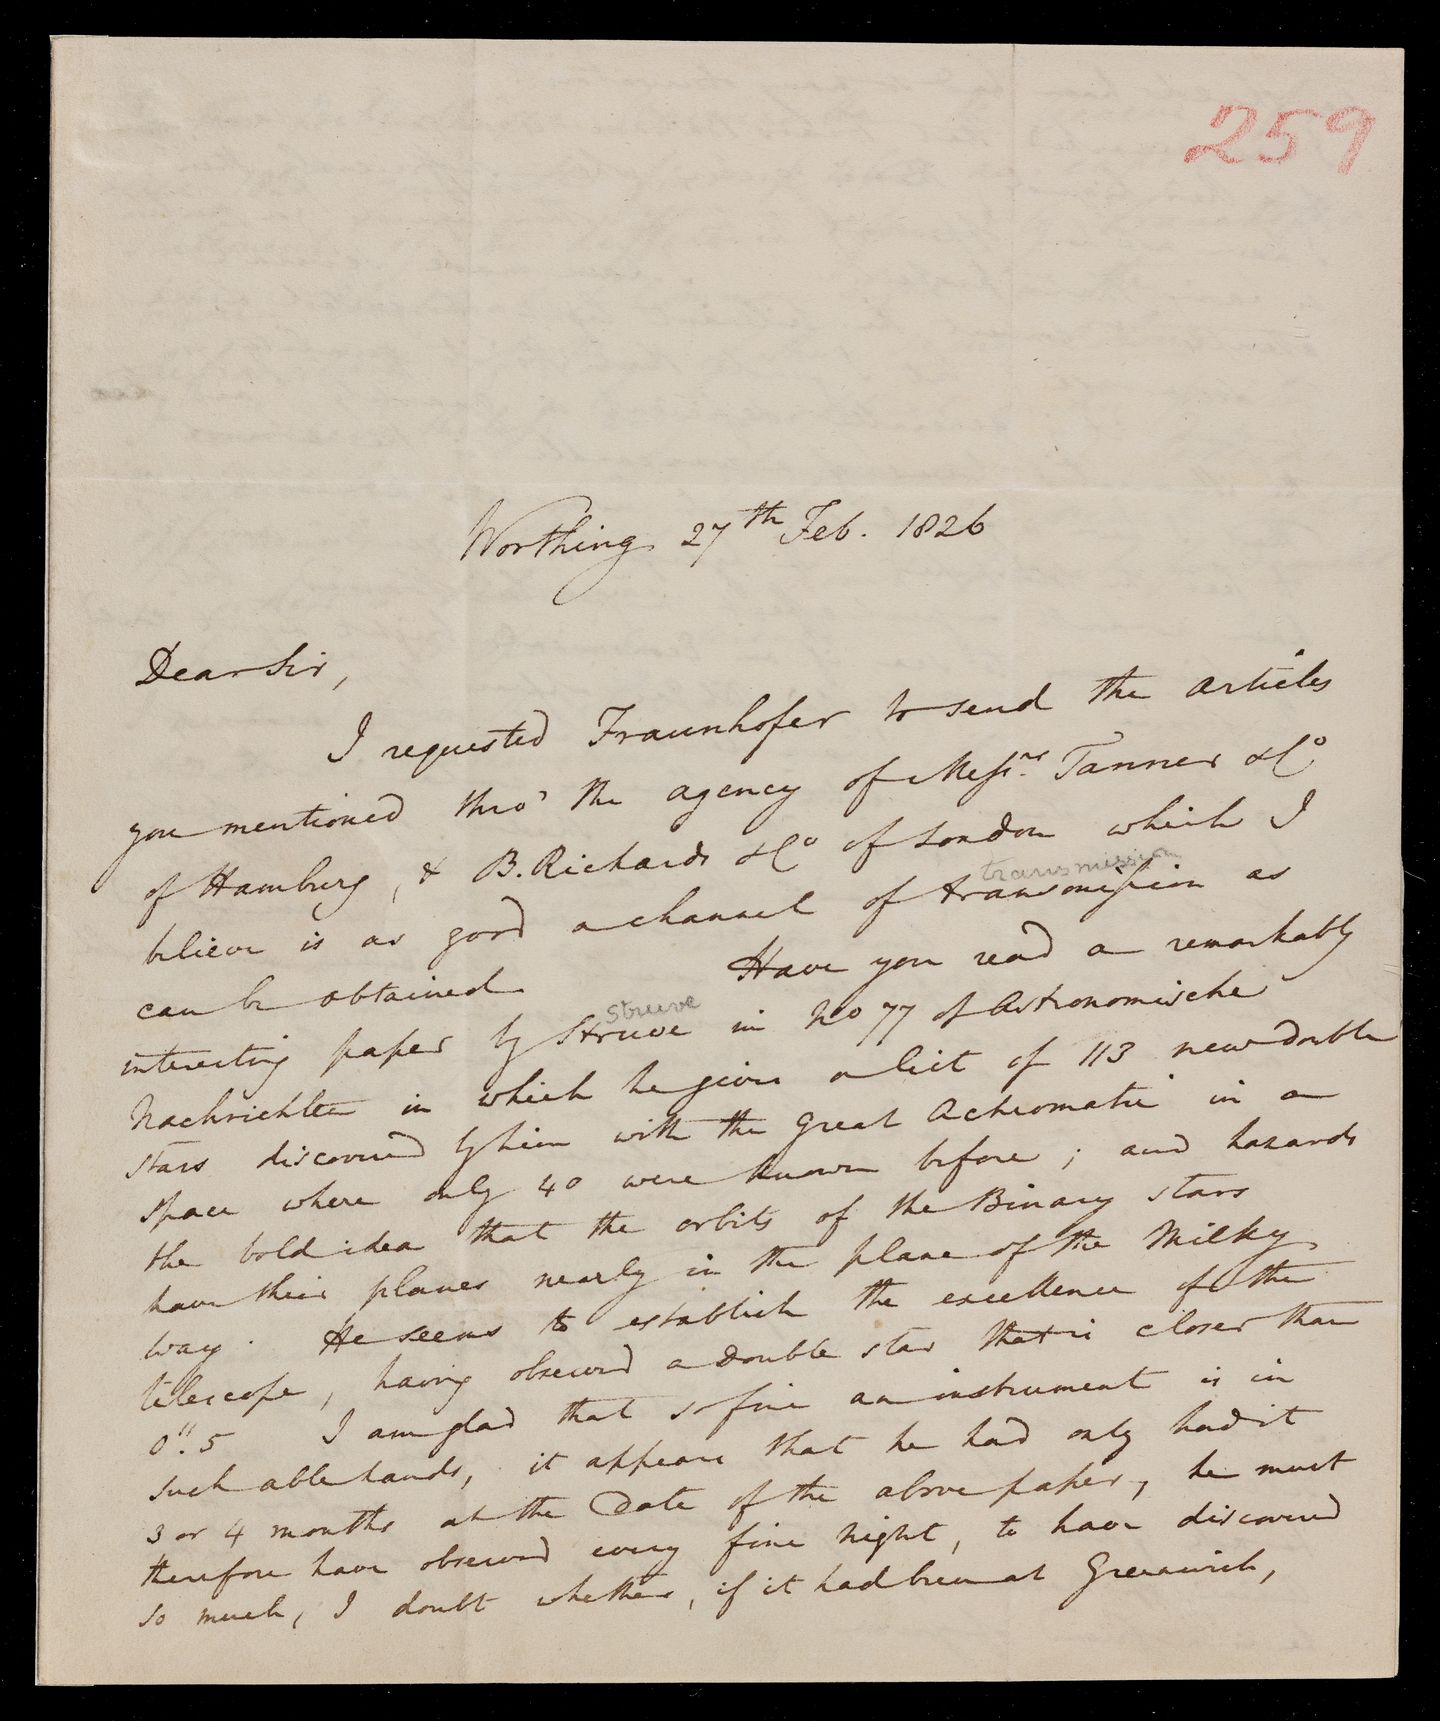 259
Worthing 27th Feb. 1826
Dear Sir,
I requested Fraunhofer to send the articles
you mentioned thro' the agency of Messrs. Tanner & Co
of Hamburg, & B. Richards & Co of London which I
transmission
believe is as good a channel of transmission as
can be obtained Have you read a remarkably
struve
interesting paper by Struve in No 77 of Astronomische
Nachrichten in which he gives a list of 113 new double
stars discovered by him with the great Achromatic in a
space where only 40 were known before; and hazards
the bold idea that the orbits of the Binary stars
have their planes nearly in the plane of the Milky
way. He seems to establish the excellence of the
telescope, having observed a double star that is closer than
0".5 I am glad that so fine an instrument is in
such able hands, it appears that he had only had it
3 or 4 months at the Date of the above paper, he must
therefore have observed every fine night, to have discovered
so much, I doubt whether, if it had been at Greenwich,